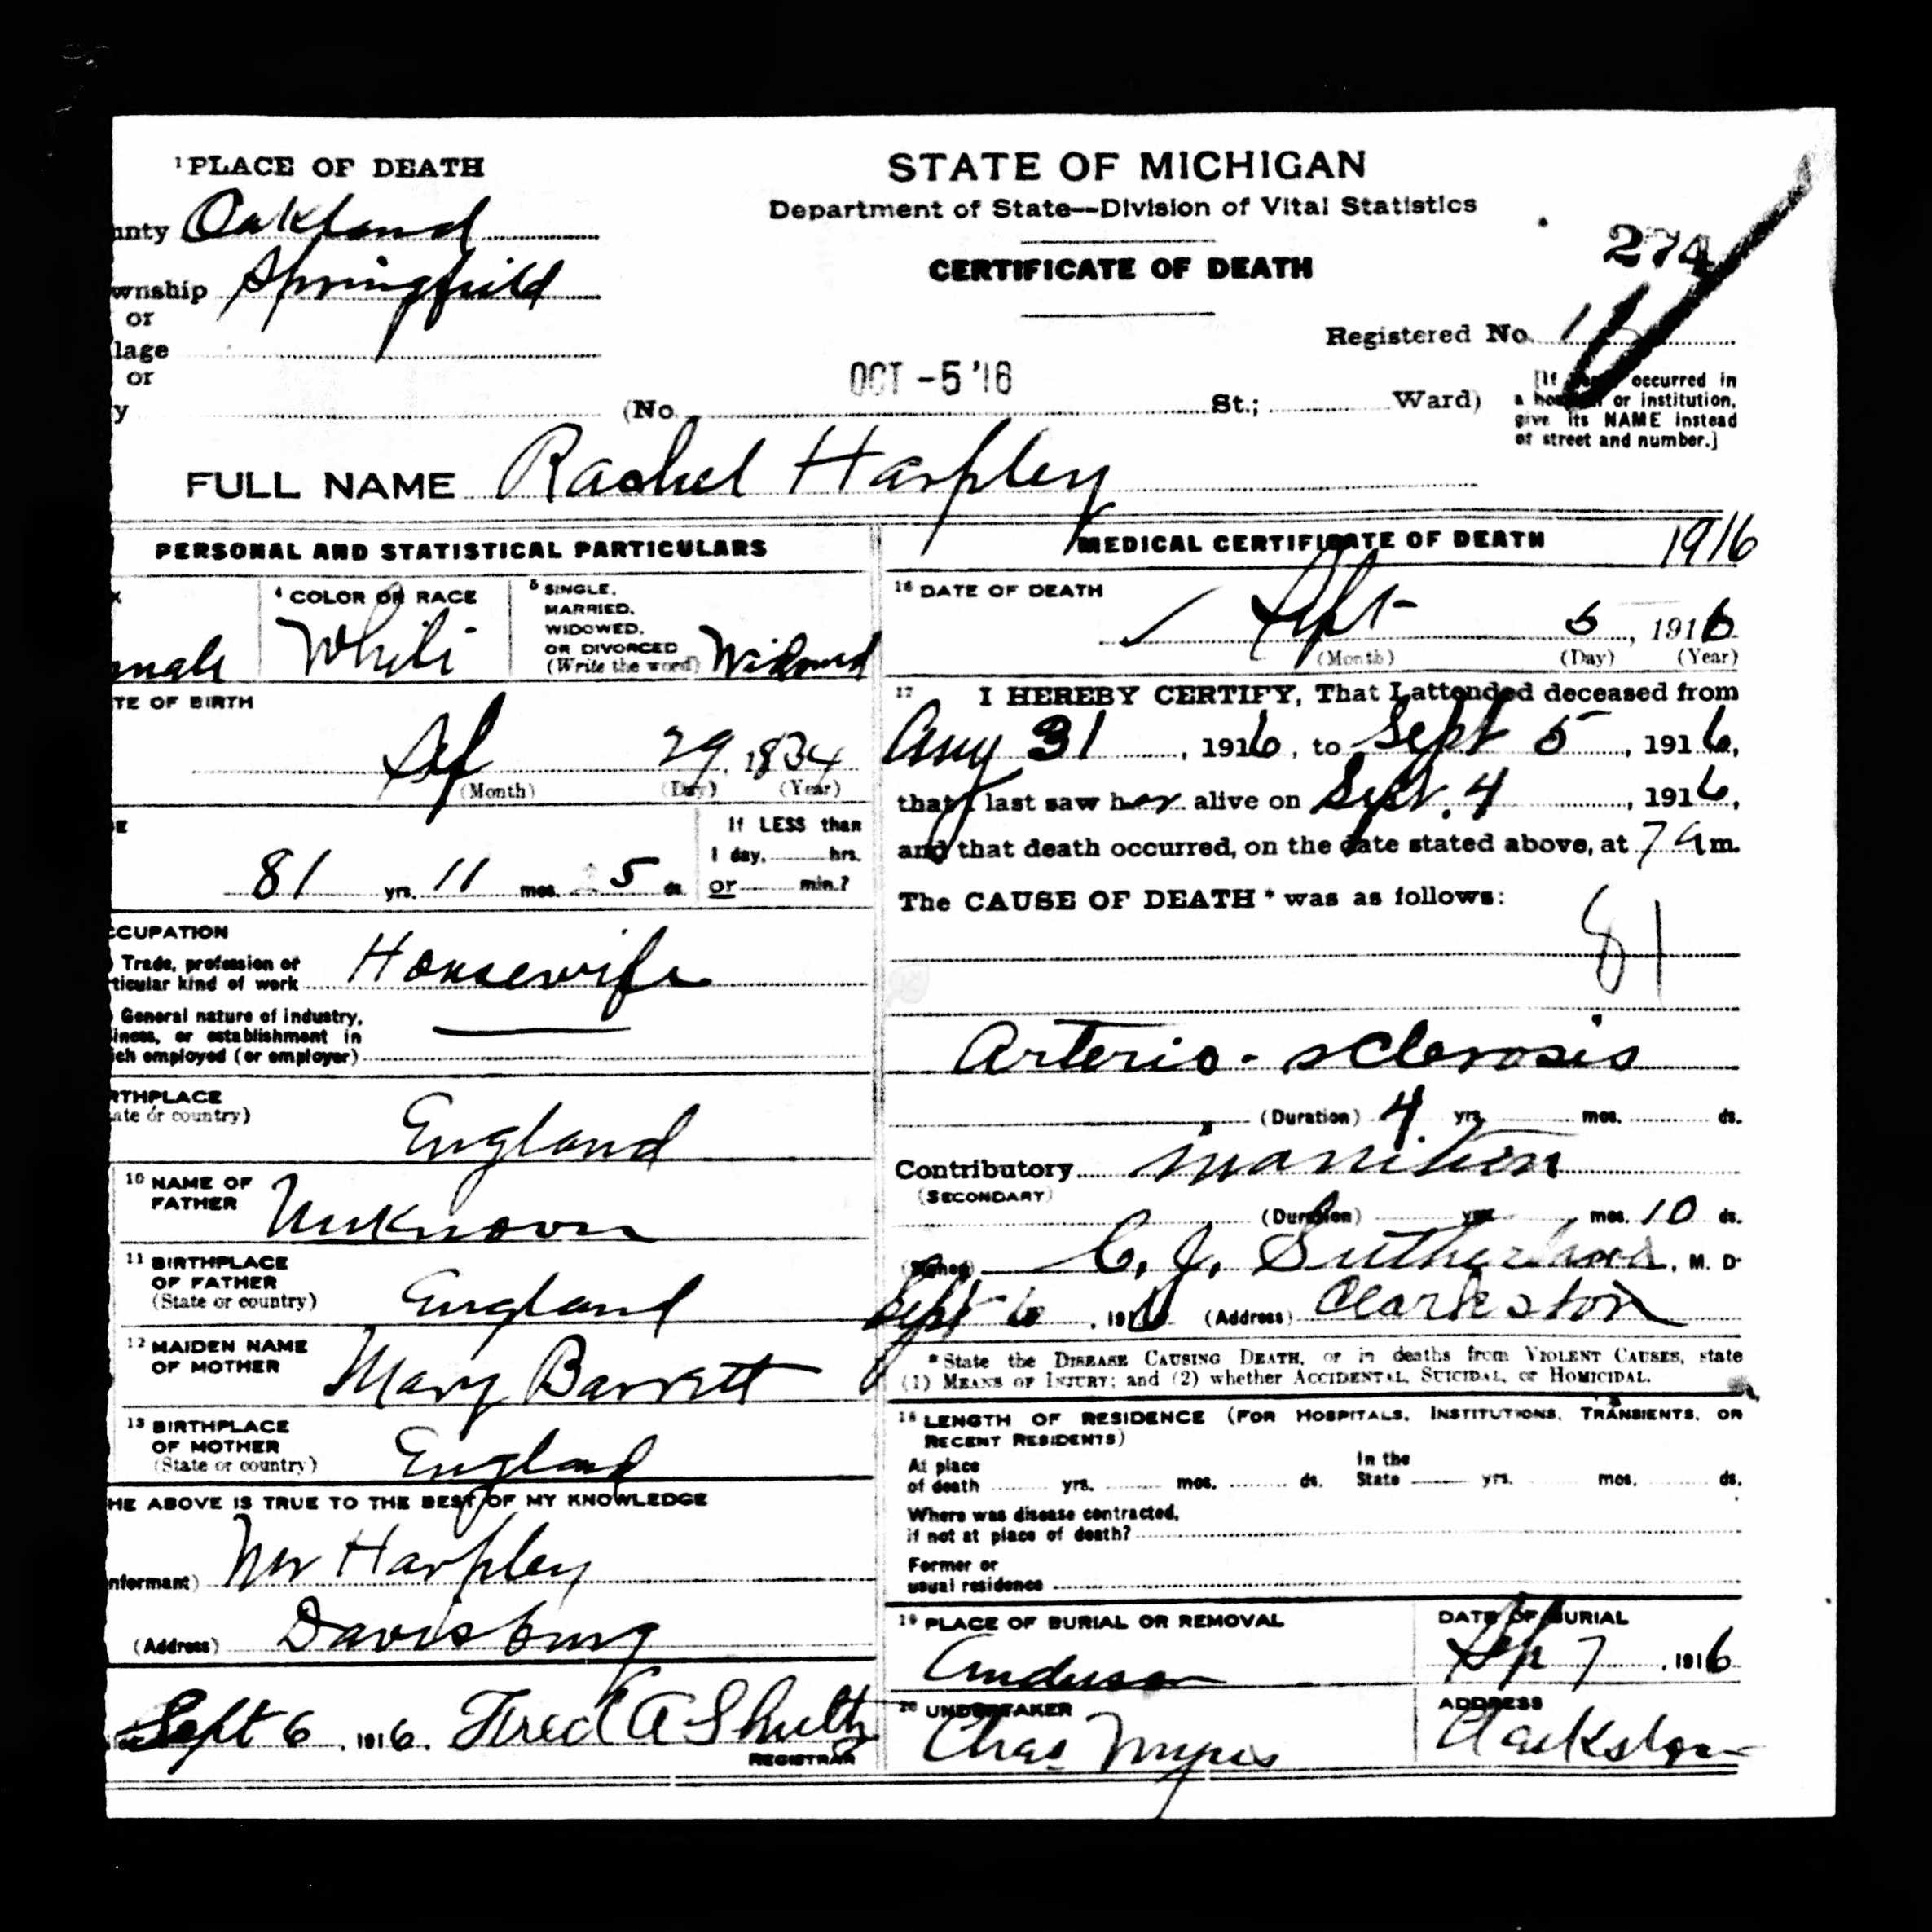 1 PLACE OF DEATH
unty Oakland
wnship Springfield
or
lage
or
y
STATE OF MICHIGAN
Department of State—Division of Vital Statistics
CERTIFICATE OF DEATH
274
Registered No.
OCT -5 '16
(No. St.; Ward)
[If occurred in
a or institution,
give its NAME instead
of street and number.]
FULL NAME Rachel Harpley
PERSONAL AND STATISTICAL PARTICULARS
X
male
4 COLOR OR RACE
White
5 SINGLE,
MARRIED,
WIDOWED,
OR DIVORCED
(Write the word) Widowed
TE OF BIRTH
29, 1834
(Month) (Day) (Year)
E
81 yrs. 11 mos. 5 ds.
If LESS than
1 day, hrs.
or min.?
CCUPATION
) Trade, profession or
ticular kind of work Housewife
) General nature of industry,
iness, or establishment in
ich employed (or employer)
RTHPLACE
ate or country)
England
10 NAME OF
FATHER Unknown
11 BIRTHPLACE
OF FATHER
(State or country) England
12 MAIDEN NAME
OF MOTHER Mary Barrett
13 BIRTHPLACE
OF MOTHER
(State or country) England
HE ABOVE IS TRUE TO THE BEST OF MY KNOWLEDGE
nformant) Harpley
(Address) Davisburg
Sept 6, 1916. Fred A Shultz
REGISTRAR
MEDICAL CERTIFICATE OF DEATH
1916
16 DATE OF DEATH
Sept 5, 1916
(Month) (Day) (Year)
17 I HEREBY CERTIFY, That I attended deceased from
Aug 31, 1916, to Sept 5, 1916,
that I last saw her alive on Sept. 4, 1916,
and that death occurred, on the date stated above, at 7 A m.
The CAUSE OF DEATH * was as follows:
81
Arterio-sclerosis
(Duration) 4 yrs. mos. ds.
Contributory inanition
(SECONDARY)
(Duration) yrs. mos. 10 ds.
(Signed) C. J. Sutherland, M. D.
Sept 6, 1916 (Address) Clarkston
* State the DISEASE CAUSING DEATH, or in deaths from VIOLENT CAUSES, state
(1) MEANS OF INJURY; and (2) whether ACCIDENTAL, SUICIDAL, or HOMICIDAL.
18 LENGTH OF RESIDENCE (FOR HOSPITALS, INSTITUTIONS, TRANSIENTS, OR
RECENT RESIDENTS)
At place
of death yrs. mos. ds.
In the
State yrs. mos. ds.
Where was disease contracted,
if not at place of death?
Former or
usual residence
19 PLACE OF BURIAL OR REMOVAL
Anderson
DATE OF BURIAL
Sep 7, 1916
20 UNDERTAKER
Chas
ADDRESS
Clarkston